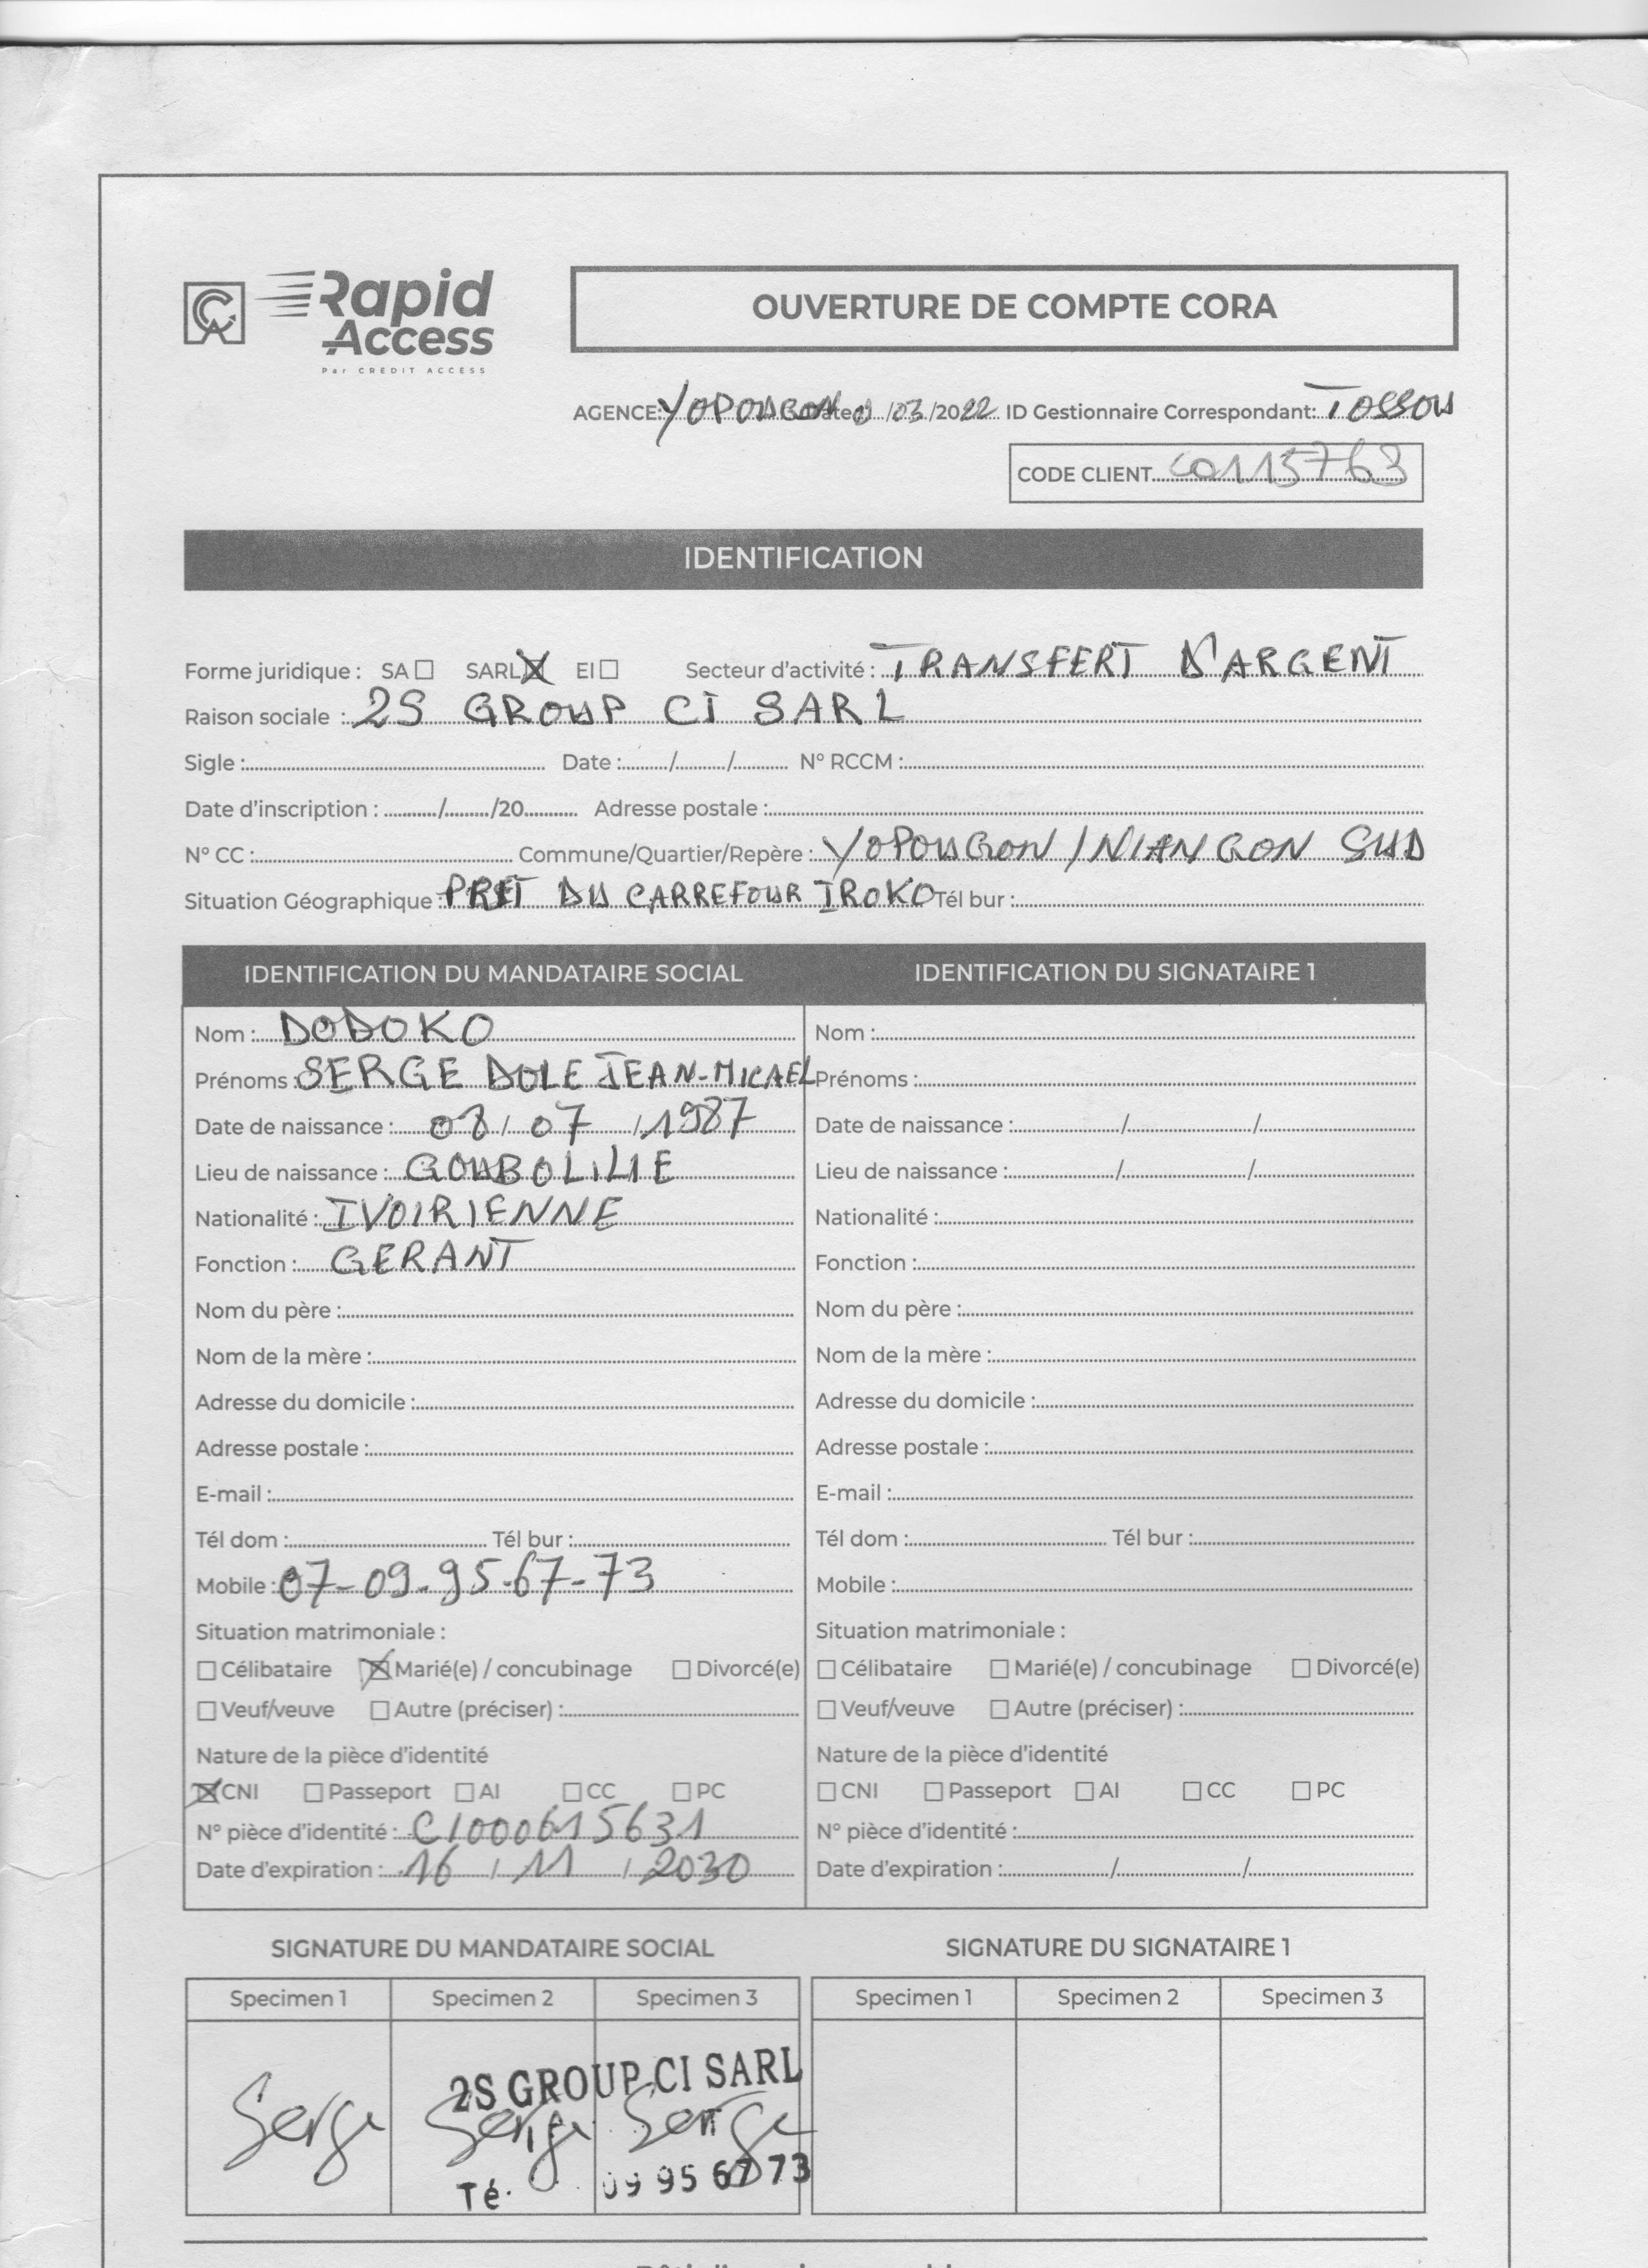 Rapid
Access
Par CREDIT ACCESS
OUVERTURE DE COMPTE CORA
AGENCE: YOPOUGON Date /03/2022 ID Gestionnaire Correspondant: TOSSOU
CODE CLIENT C0115763
IDENTIFICATION
Forme juridique : SA SARL EI Secteur d'activité : TRANSFERT D'ARGENT
Raison sociale : 2S GROUP CI SARL
Sigle : Date : / / N° RCCM :
Date d'inscription : / /20 Adresse postale :
N° CC : Commune/Quartier/Repère : YOPOUGON / NIANGON SUD
Situation Géographique : PRET DU CARREFOUR IROKO Tél bur :
IDENTIFICATION DU MANDATAIRE SOCIAL
Nom : DODOKO
Prénoms : SERGE DOLE JEAN-MICAEL
Date de naissance : 08 / 07 / 1987
Lieu de naissance : GOUBOLILIE
Nationalité : IVOIRIENNE
Fonction : GERANT
Nom du père :
Nom de la mère :
Adresse du domicile :
Adresse postale :
E-mail :
Tél dom : Tél bur :
Mobile : 07-09-95-67-73
Situation matrimoniale :
Célibataire Marié(e) / concubinage Divorcé(e)
Veuf/veuve Autre (préciser) :
Nature de la pièce d'identité
CNI Passeport AI CC PC
N° pièce d'identité : CI000615631
Date d'expiration : 16 / 11 / 2030
IDENTIFICATION DU SIGNATAIRE 1
Nom :
Prénoms :
Date de naissance : / /
Lieu de naissance : / /
Nationalité :
Fonction :
Nom du père :
Nom de la mère :
Adresse du domicile :
Adresse postale :
E-mail :
Tél dom : Tél bur :
Mobile :
Situation matrimoniale :
Célibataire Marié(e) / concubinage Divorcé(e)
Veuf/veuve Autre (préciser) :
Nature de la pièce d'identité
CNI Passeport AI CC PC
N° pièce d'identité :
Date d'expiration : / /
SIGNATURE DU MANDATAIRE SOCIAL
Specimen 1 Specimen 2 Specimen 3
2S GROUP CI SARL
Serge Serge Serge
Té 09 95 67 73
SIGNATURE DU SIGNATAIRE 1
Specimen 1 Specimen 2 Specimen 3